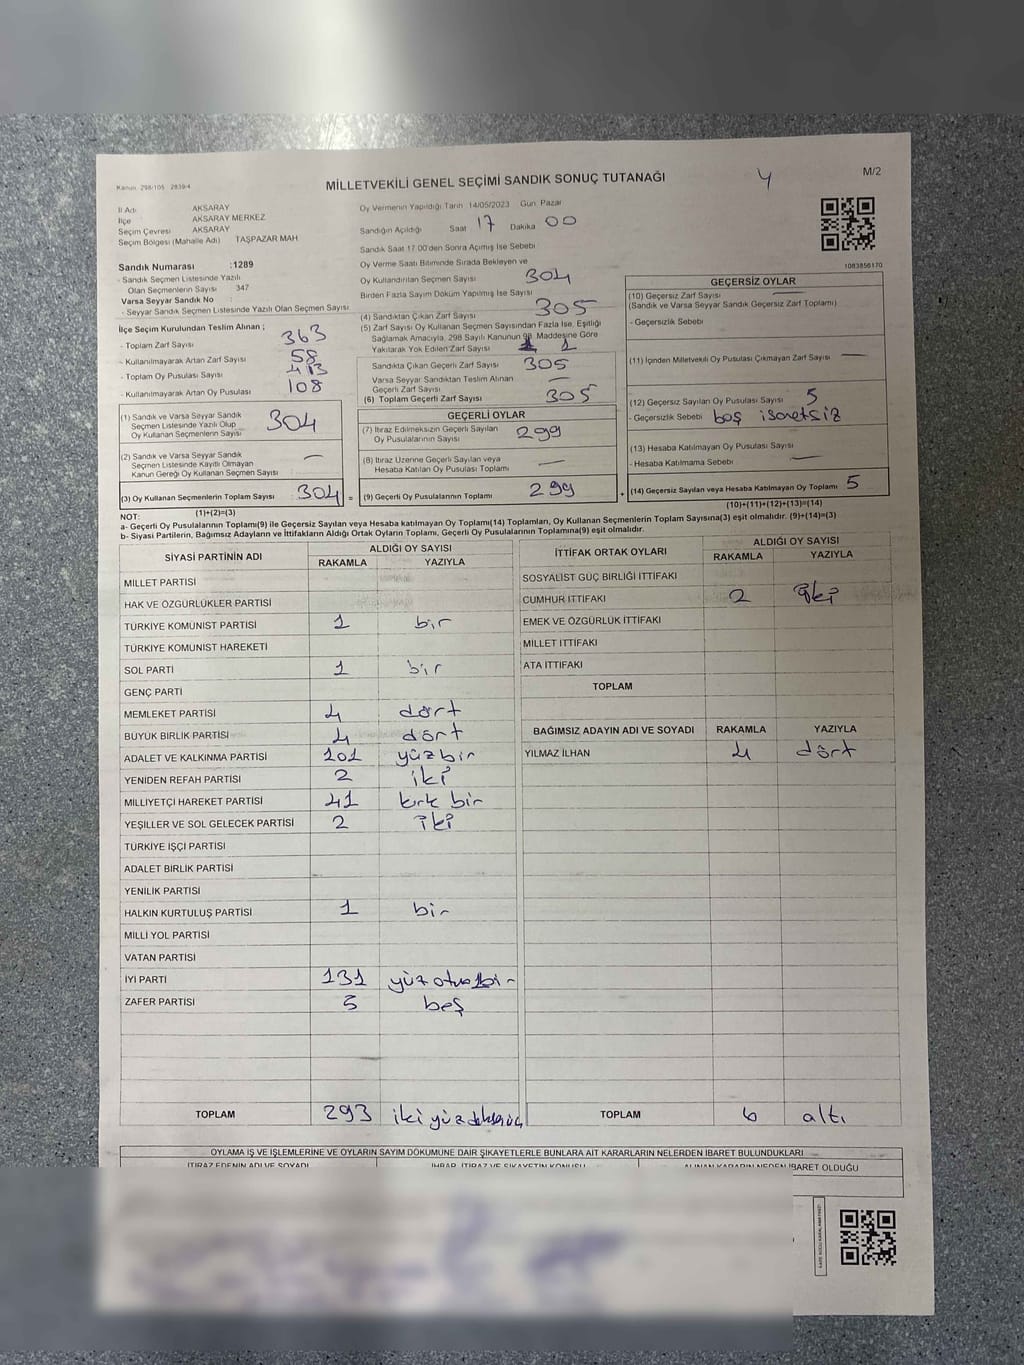 Kanun: 298/105 2839/4
MİLLETVEKİLİ GENEL SEÇİMİ SANDIK SONUÇ TUTANAĞI
4
M/2
İl Adı AKSARAY
İlçe AKSARAY MERKEZ
Seçim Çevresi AKSARAY
Seçim Bölgesi (Mahalle Adı) TAŞPAZAR MAH
Sandık Numarası :1289
- Sandık Seçmen Listesinde Yazılı
Olan Seçmenlerin Sayısı 347
Varsa Seyyar Sandık No :
- Seyyar Sandık Seçmen Listesinde Yazılı Olan Seçmen Sayısı
İlçe Seçim Kurulundan Teslim Alınan ;
- Toplam Zarf Sayısı 363
- Kullanılmayarak Artan Zarf Sayısı 58
- Toplam Oy Pusulası Sayısı 413
- Kullanılmayarak Artan Oy Pusulası 108
(1) Sandık ve Varsa Seyyar Sandık
Seçmen Listesinde Yazılı Olup
Oy Kullanan Seçmenlerin Sayısı 304
(2) Sandık ve Varsa Seyyar Sandık
Seçmen Listesinde Kayıtlı Olmayan
Kanun Gereği Oy Kullanan Seçmen Sayısı —
(3) Oy Kullanan Seçmenlerin Toplam Sayısı : 304 =
(1)+(2)=(3)
Oy Vermenin Yapıldığı Tarih 14/05/2023 Gün: Pazar
Sandığın Açıldığı Saat 17 Dakika 00
Sandık Saat 17:00'den Sonra Açılmış İse Sebebi
Oy Verme Saati Bitiminde Sırada Bekleyen ve
Oy Kullandırılan Seçmen Sayısı 304
Birden Fazla Sayım Döküm Yapılmış İse Sayısı
(4) Sandıktan Çıkan Zarf Sayısı 305
(5) Zarf Sayısı Oy Kullanan Seçmen Sayısından Fazla İse, Eşitliği
Sağlamak Amacıyla, 298 Sayılı Kanunun 98. Maddesine Göre
Yakılarak Yok Edilen Zarf Sayısı 1
Sandıkta Çıkan Geçerli Zarf Sayısı 305
Varsa Seyyar Sandıktan Teslim Alınan
Geçerli Zarf Sayısı —
(6) Toplam Geçerli Zarf Sayısı 305
GEÇERLİ OYLAR
(7) İtiraz Edilmeksizin Geçerli Sayılan
Oy Pusulalarının Sayısı 299
(8) İtiraz Üzerine Geçerli Sayılan veya
Hesaba Katılan Oy Pusulası Toplamı —
(9) Geçerli Oy Pusulalarının Toplamı 299 +
1083856170
GEÇERSİZ OYLAR
(10) Geçersiz Zarf Sayısı
(Sandık ve Varsa Seyyar Sandık Geçersiz Zarf Toplamı)
- Geçersizlik Sebebi
(11) İçinden Milletvekili Oy Pusulası Çıkmayan Zarf Sayısı —
(12) Geçersiz Sayılan Oy Pusulası Sayısı 5
- Geçersizlik Sebebi boş isaretsiz
(13) Hesaba Katılmayan Oy Pusulası Sayısı
- Hesaba Katılmama Sebebi —
(14) Geçersiz Sayılan veya Hesaba Katılmayan Oy Toplamı 5
(10)+(11)+(12)+(13)=(14)
NOT:
a- Geçerli Oy Pusulalarının Toplamı(9) ile Geçersiz Sayılan veya Hesaba katılmayan Oy Toplamı(14) Toplamları, Oy Kullanan Seçmenlerin Toplam Sayısına(3) eşit olmalıdır. (9)+(14)=(3)
b- Siyasi Partilerin, Bağımsız Adayların ve İttifakların Aldığı Ortak Oyların Toplamı, Geçerli Oy Pusulalarının Toplamına(9) eşit olmalıdır.
SİYASİ PARTİNİN ADI ALDIĞI OY SAYISI
RAKAMLA YAZIYLA
MİLLET PARTİSİ
HAK VE ÖZGÜRLÜKLER PARTİSİ
TÜRKİYE KOMÜNİST PARTİSİ 1 bir
TÜRKİYE KOMÜNİST HAREKETİ
SOL PARTİ 1 bir
GENÇ PARTİ
MEMLEKET PARTİSİ 4 dört
BÜYÜK BİRLİK PARTİSİ 4 dört
ADALET VE KALKINMA PARTİSİ 101 yüzbir
YENİDEN REFAH PARTİSİ 2 iki
MİLLİYETÇİ HAREKET PARTİSİ 41 kırk bir
YEŞİLLER VE SOL GELECEK PARTİSİ 2 iki
TÜRKİYE İŞÇİ PARTİSİ
ADALET BİRLİK PARTİSİ
YENİLİK PARTİSİ
HALKIN KURTULUŞ PARTİSİ 1 bir
MİLLİ YOL PARTİSİ
VATAN PARTİSİ
İYİ PARTİ 131 yüzotuzbir
ZAFER PARTİSİ 5 beş
TOPLAM 293 iki yüz
İTTİFAK ORTAK OYLARI ALDIĞI OY SAYISI
RAKAMLA YAZIYLA
SOSYALİST GÜÇ BİRLİĞİ İTTİFAKI
CUMHUR İTTİFAKI 2 iki
EMEK VE ÖZGÜRLÜK İTTİFAKI
MİLLET İTTİFAKI
ATA İTTİFAKI
TOPLAM
BAĞIMSIZ ADAYIN ADI VE SOYADI RAKAMLA YAZIYLA
YILMAZ İLHAN 4 dört
TOPLAM 6 altı
OYLAMA İŞ VE İŞLEMLERİNE VE OYLARIN SAYIM DÖKÜMÜNE DAİR ŞİKAYETLERLE BUNLARA AİT KARARLARIN NELERDEN İBARET BULUNDUKLARI
İTİRAZ EDENİN ADI VE SOYADI İHBAR, İTİRAZ VE ŞİKAYETİN KONUSU ALINAN KARARIN NEDEN İBARET OLDUĞU